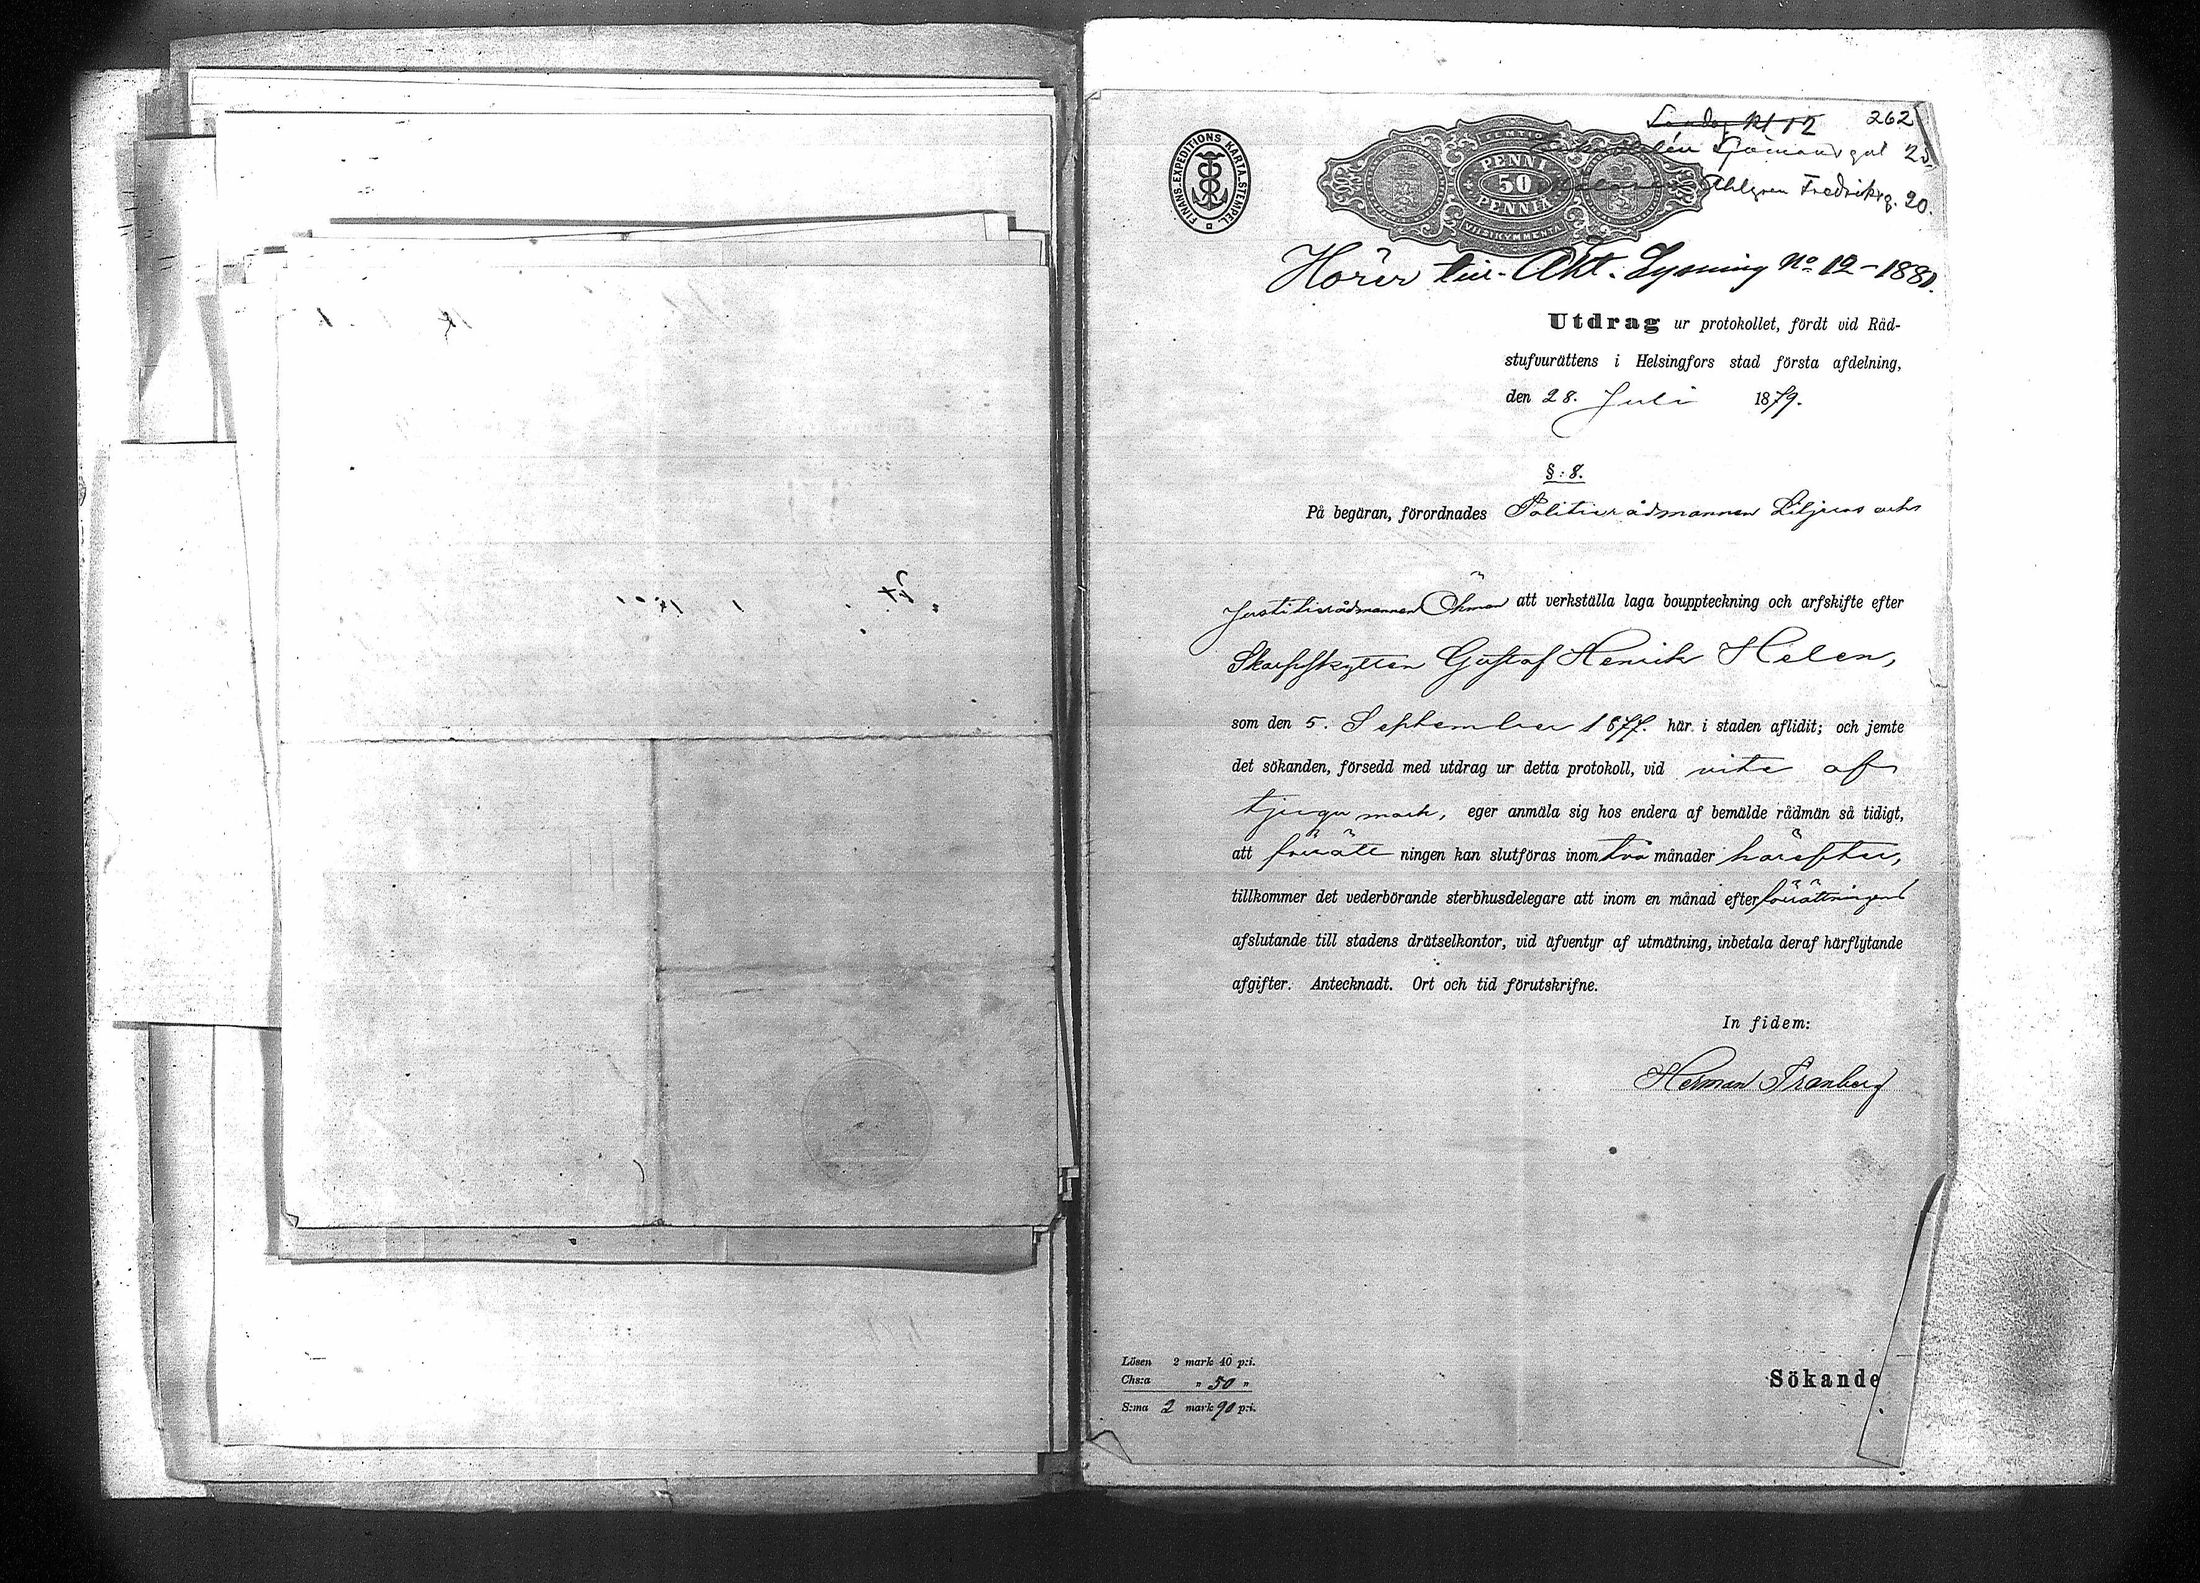 262
Söndag kl 12
Helén Sjömansgat 25
Ahlgren Fredriksg. 20.
FINANS.EXPEDITIONS KARTA.STEMPEL
FEMTIO
PENNI
50
PENNIÄ
VIISIKYMMENTÄ
Hörer till Akt. Lysning No 12 – 1880.
Utdrag ur protokollet, fördt vid Råd-
stufvurättens i Helsingfors stad första afdelning,
den 28. Juli 1879.
§: 8.
På begäran, förordnades Politierådmannen Liljens och
Justitierådmannen Öhman att verkställa laga bouppteckning och arfskifte efter
Skarpskytten Gustaf Henrik Helen,
som den 5. September 1877. här i staden aflidit; och jemte
det sökanden, försedd med utdrag ur detta protokoll, vid vite af
tjugu mark, eger anmäla sig hos endera af bemälde rådmän så tidigt,
att förrätt ningen kan slutföras inom två månader härefter,
tillkommer det vederbörande sterbhusdelegare att inom en månad efter förrättningens
afslutande till stadens drätselkontor, vid äfventyr af utmätning, inbetala deraf härflytande
afgifter. Antecknadt. Ort och tid förutskrifne.
In fidem:
Herman Tranberg
Lösen 2 mark 40 p:i.
Chs:a „ 50 „
S:ma 2 mark 90 p:i.
Sökande